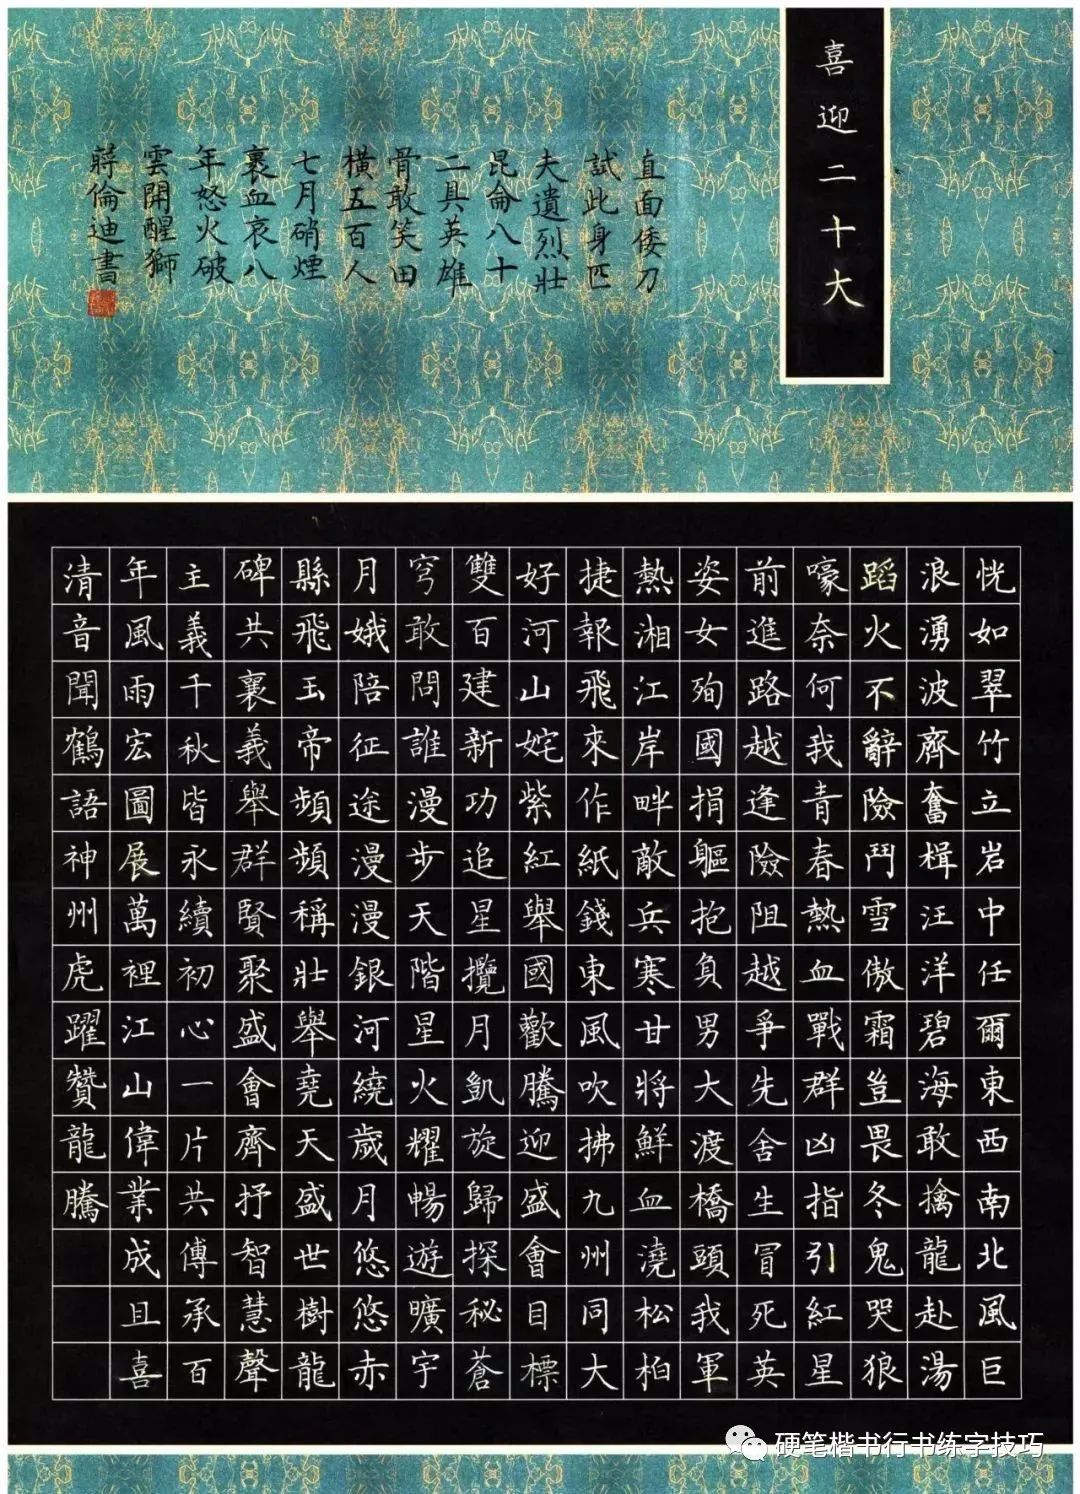 喜迎二十大
直面倭刀
試此身匹
夫遺烈壯
昆侖八十
二具英雄
骨敢笑田
橫五百人
七月硝煙
裹血哀八
年怒火破
雲開醒獅
蔣倫迪書
恍如翠竹立岩中任爾東西南北風巨
浪湧波齊奮楫汪洋碧海敢擒龍赴湯
蹈火不辭險鬥雪傲霜豈畏冬鬼哭狼
嚎奈何我青春熱血戰群凶指引紅星
前進路越逢險阻越爭先舍生冒死英
姿女殉國捐軀抱負男大渡橋頭我軍
熱湘江岸畔敵兵寒甘將鮮血澆松柏
捷報飛來作紙錢東風吹拂九州同大
好河山姹紫紅舉國歡騰迎盛會目標
雙百建新功追星攬月凱旋歸探秘蒼
穹敢問誰漫步天階星火耀暢遊曠宇
月娥陪征途漫漫銀河繞歲月悠悠赤
縣飛玉帝頻頻稱壯舉堯天盛世樹龍
碑共襄義舉群賢聚盛會齊抒智慧聲
主義千秋皆永續初心一片共傳承百
年風雨宏圖展萬裡江山偉業成且喜
清音聞鶴語神州虎躍贊龍騰
硬笔楷书行书练字技巧